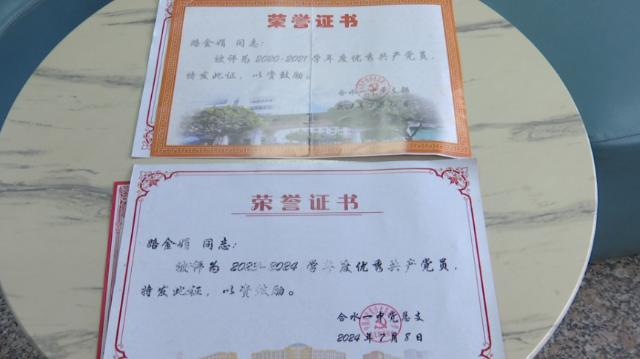 荣誉证书
路金娟 同志：
被评为 2020-2021 学年度优秀共产党员，
特发此证，以资鼓励。
合水一中党总支
荣誉证书
路金娟 同志：
被评为 2023-2024 学年度优秀共产党员，
特发此证，以资鼓励。
合水一中党总支
2024 年 7 月 8 日